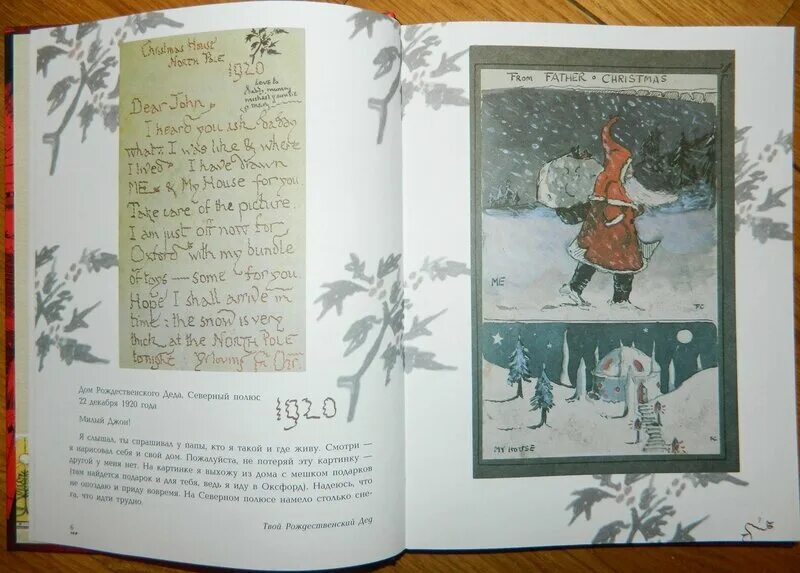 Christmas House
NORTH POLE
1920
Love to
daddy, mummy
michael & auntie
Dear John
I heard you ask daddy
what I was like & where
I lived I have drawn
ME & My House for you
Take care of the picture.
I am just off now for
Oxford with my bundle
of toys — some for you.
Hope I shall arrive in
time: the snow is very
thick at the NORTH POLE
tonight Yr loving Fr. Chr.
Дом Рождественского Деда, Северный полюс
22 декабря 1920 года
1920
Милый Джон!
Я слышал, ты спрашивал у папы, кто я такой и где живу. Смотри —
я нарисовал себя и свой дом. Пожалуйста, не потеряй эту картинку —
другой у меня нет. На картинке я выхожу из дома с мешком подарков
(там найдется подарок и для тебя, ведь я иду в Оксфорд). Надеюсь, что
не опоздаю и приду вовремя. На Северном полюсе намело столько сне-
га, что идти трудно.
Твой Рождественский Дед
6
FROM FATHER CHRISTMAS
ME
FC
MY HOUSE
FC
7